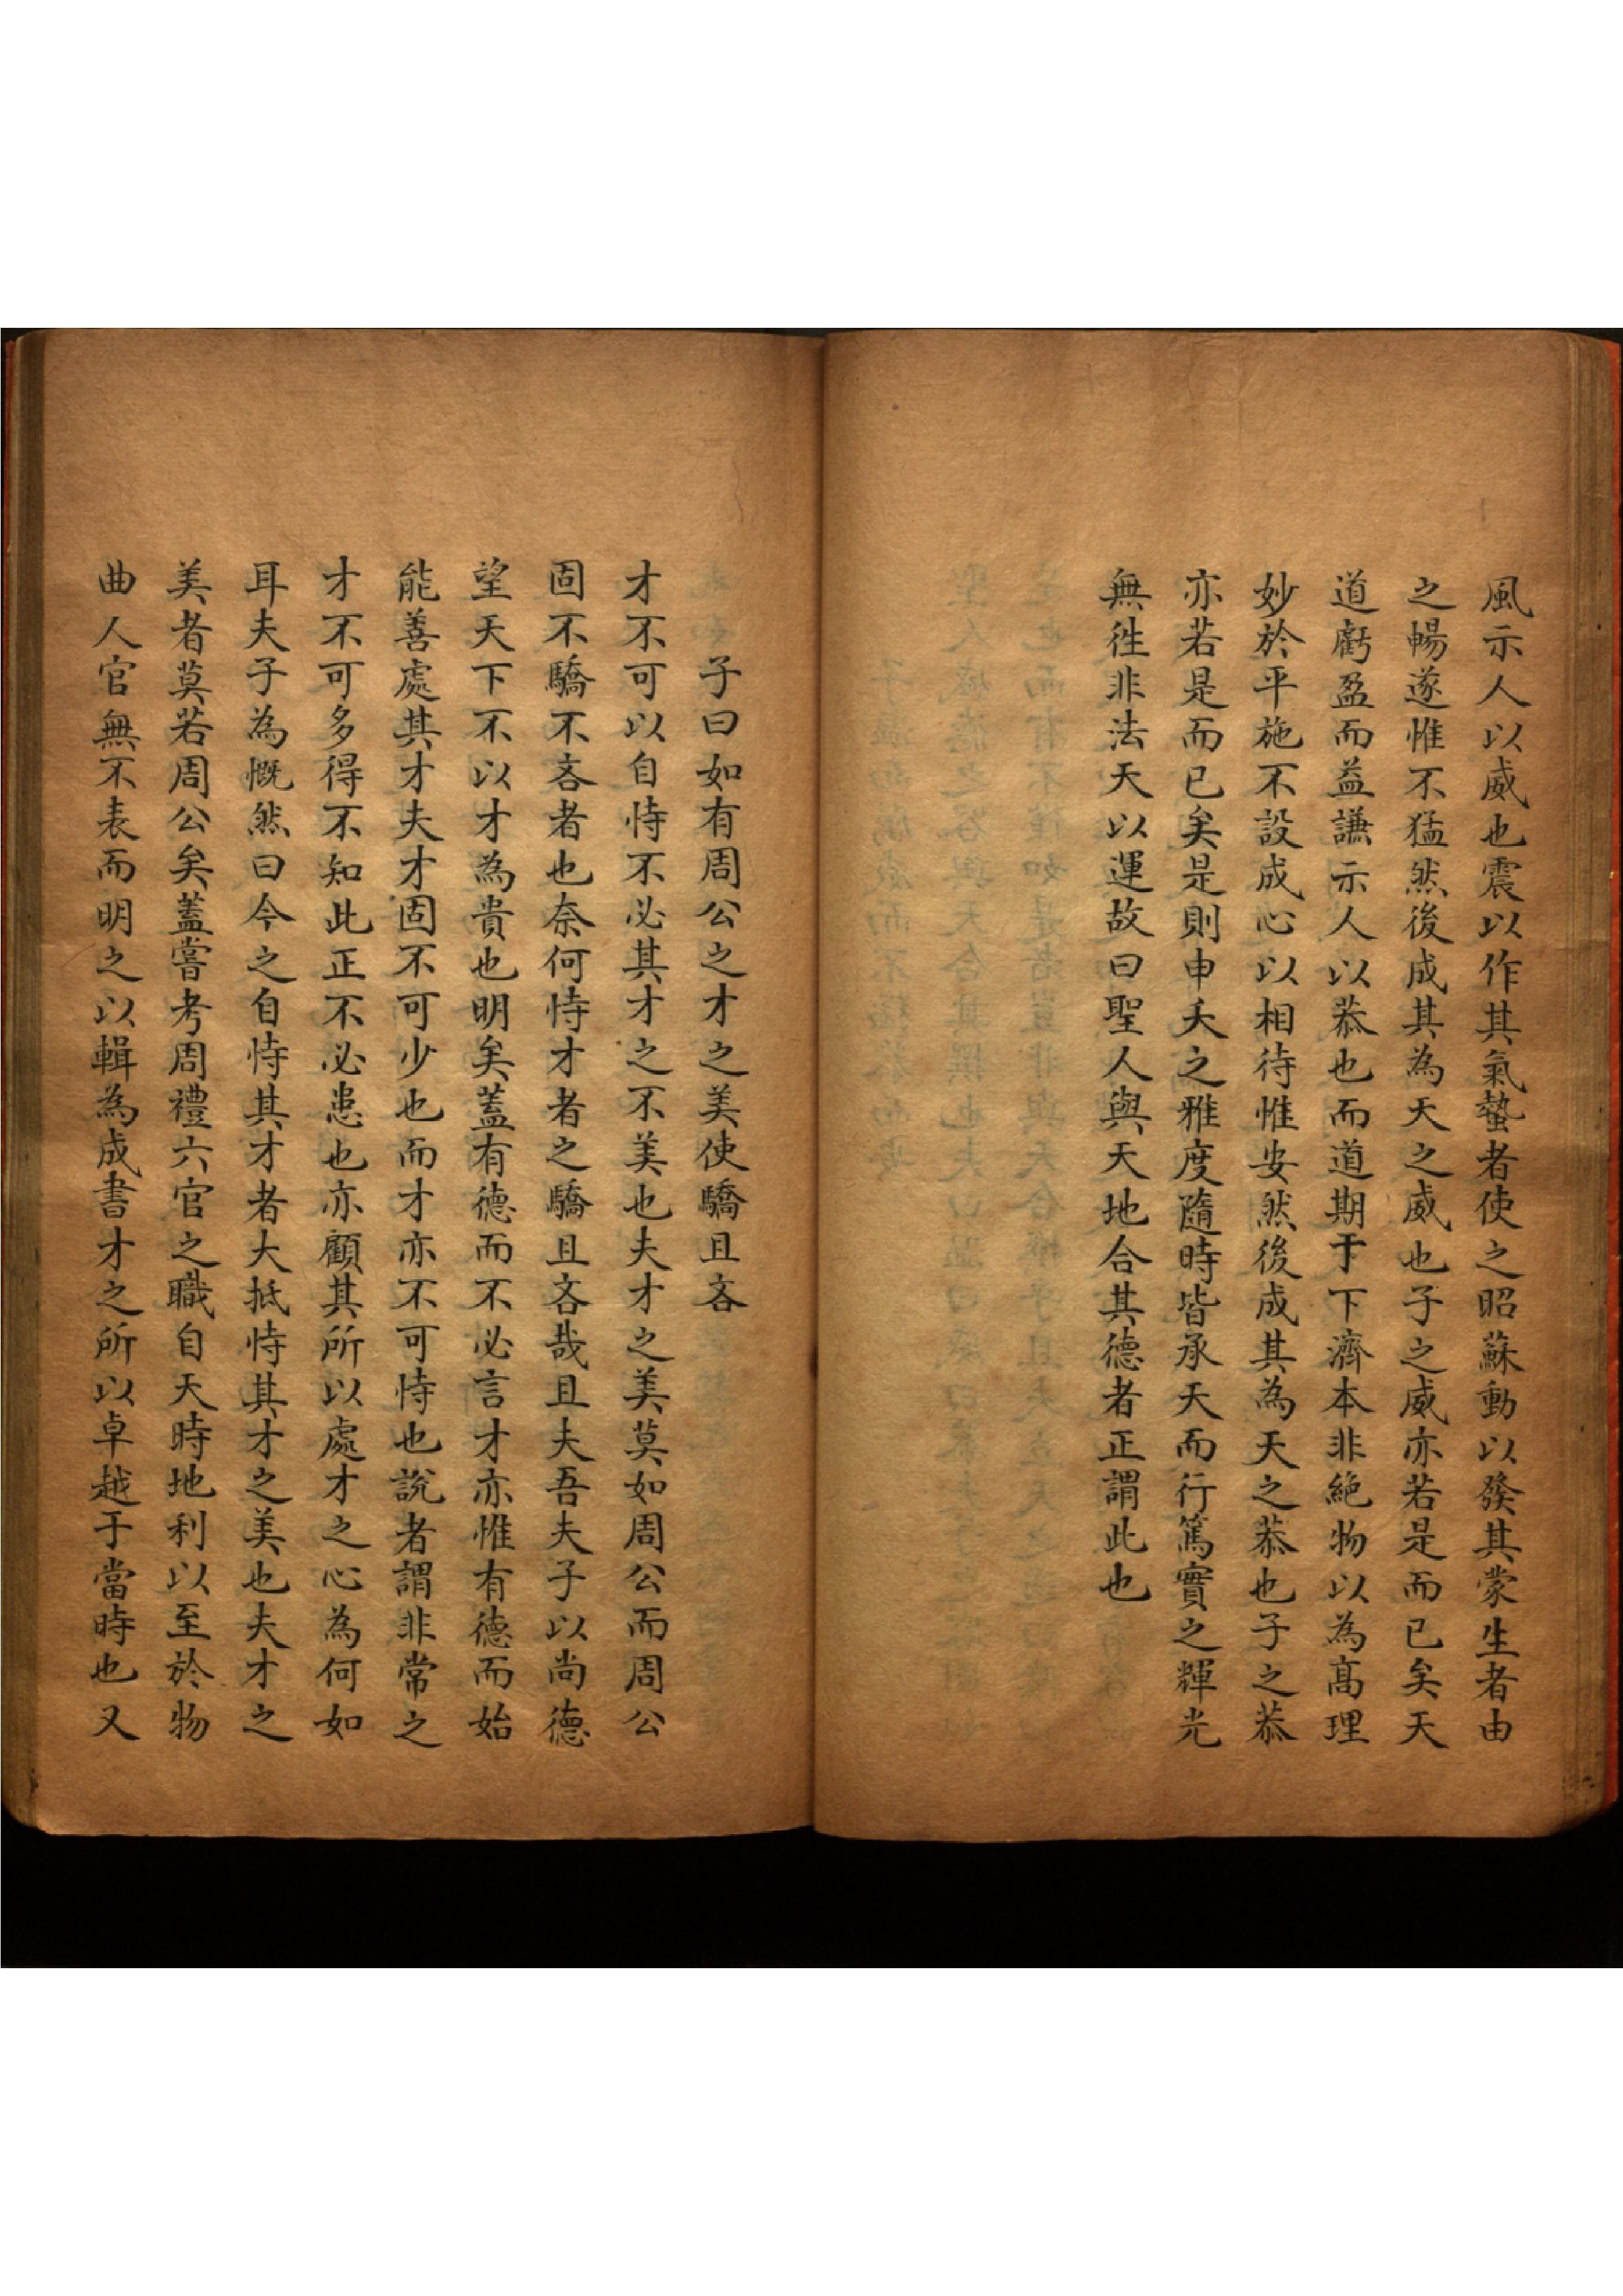 風示人以威也震以作其氣蟄者使之昭蘇動以發其蒙生者由
之暢遂惟不猛然後成其為天之威也子之威亦若是而已矣天
道虧盈而益謙示人以恭也而道期于下濟本非絕物以為高理
妙於平施不設成心以相待惟安然後成其為天之恭也子之恭
亦若是而已矣是則申夭之雅度隨時皆承天而行篤實之輝光
無徃非法天以運故曰聖人與天地合其德者正謂此也
子曰如有周公之才之美使驕且吝
才不可以自恃不必其才之不美也夫才之美莫如周公而周公
固不驕不吝者也奈何恃才者之驕且吝哉且夫吾夫子以尚德
望天下不以才為貴也明矣蓋有德而不必言才亦惟有德而始
能善處其才夫才固不可少也而才亦不可恃也說者謂非常之
才不可多得不知此正不必患也亦顧其所以處才之心為何如
耳夫子為慨然曰今之自恃其才者大抵恃其才之美也夫才之
美者莫若周公矣蓋嘗考周禮六官之職自天時地利以至於物
曲人官無不表而明之以輯為成書才之所以卓越于當時也又